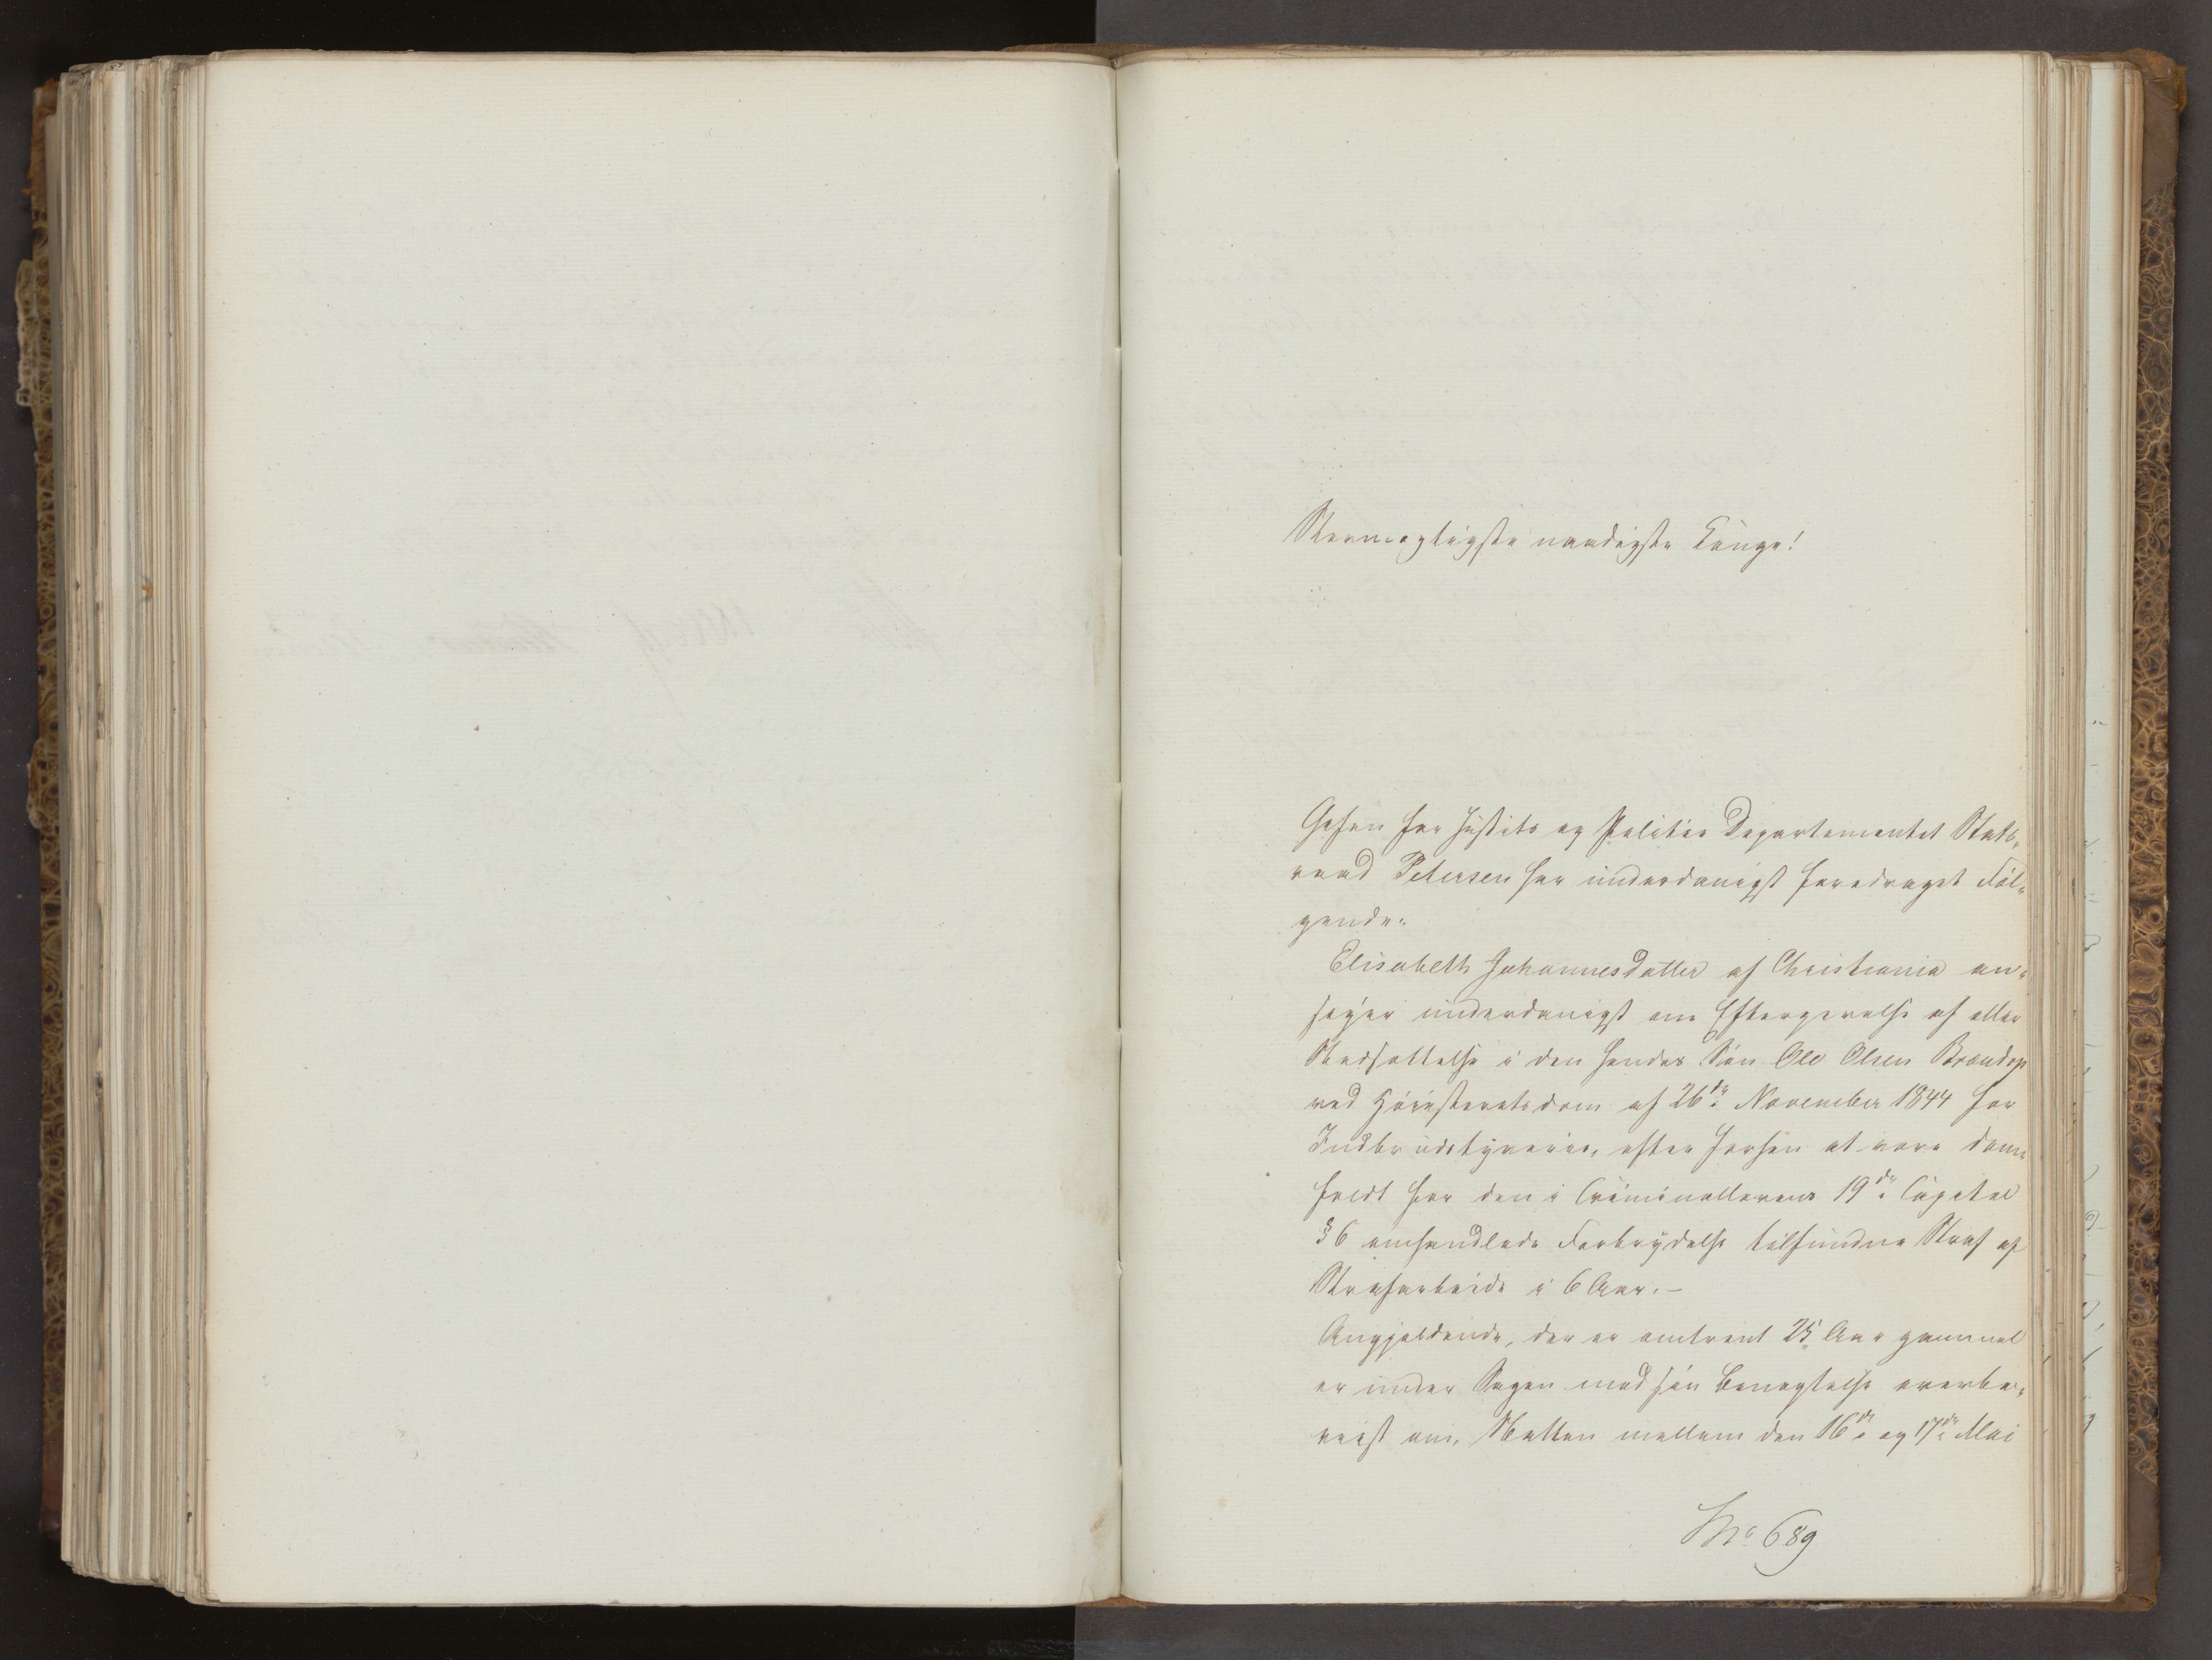 Stormægtigste naadigste Konge!
Chefen for Justits og Politie Departementet Stats-
raad Petersen har underdanigst foredraget Føl-
gende:
Elisabeth Johannesdatter af Christiania an-
søger underdanigst om Eftergivelse af eller
Nedsættelse i den hendes Søn Ole Olsen Brændop
ved Høiesteretsdom af 26de November 1844 for
Indbrudstyverie, efter forhen at være dom-
fældt for den i Criminallovens 19de Capitel
§ 6 omhandlede Forbrydelse tilfundne Straf af
Strafarbeide i 6 Aar. –
Angjældende, der er omtrent 25 Aar gammel
er under Sagen mod sin Benægtelse overbe-
viist om, Natten mellem den 16de og 17de Mai
No 689